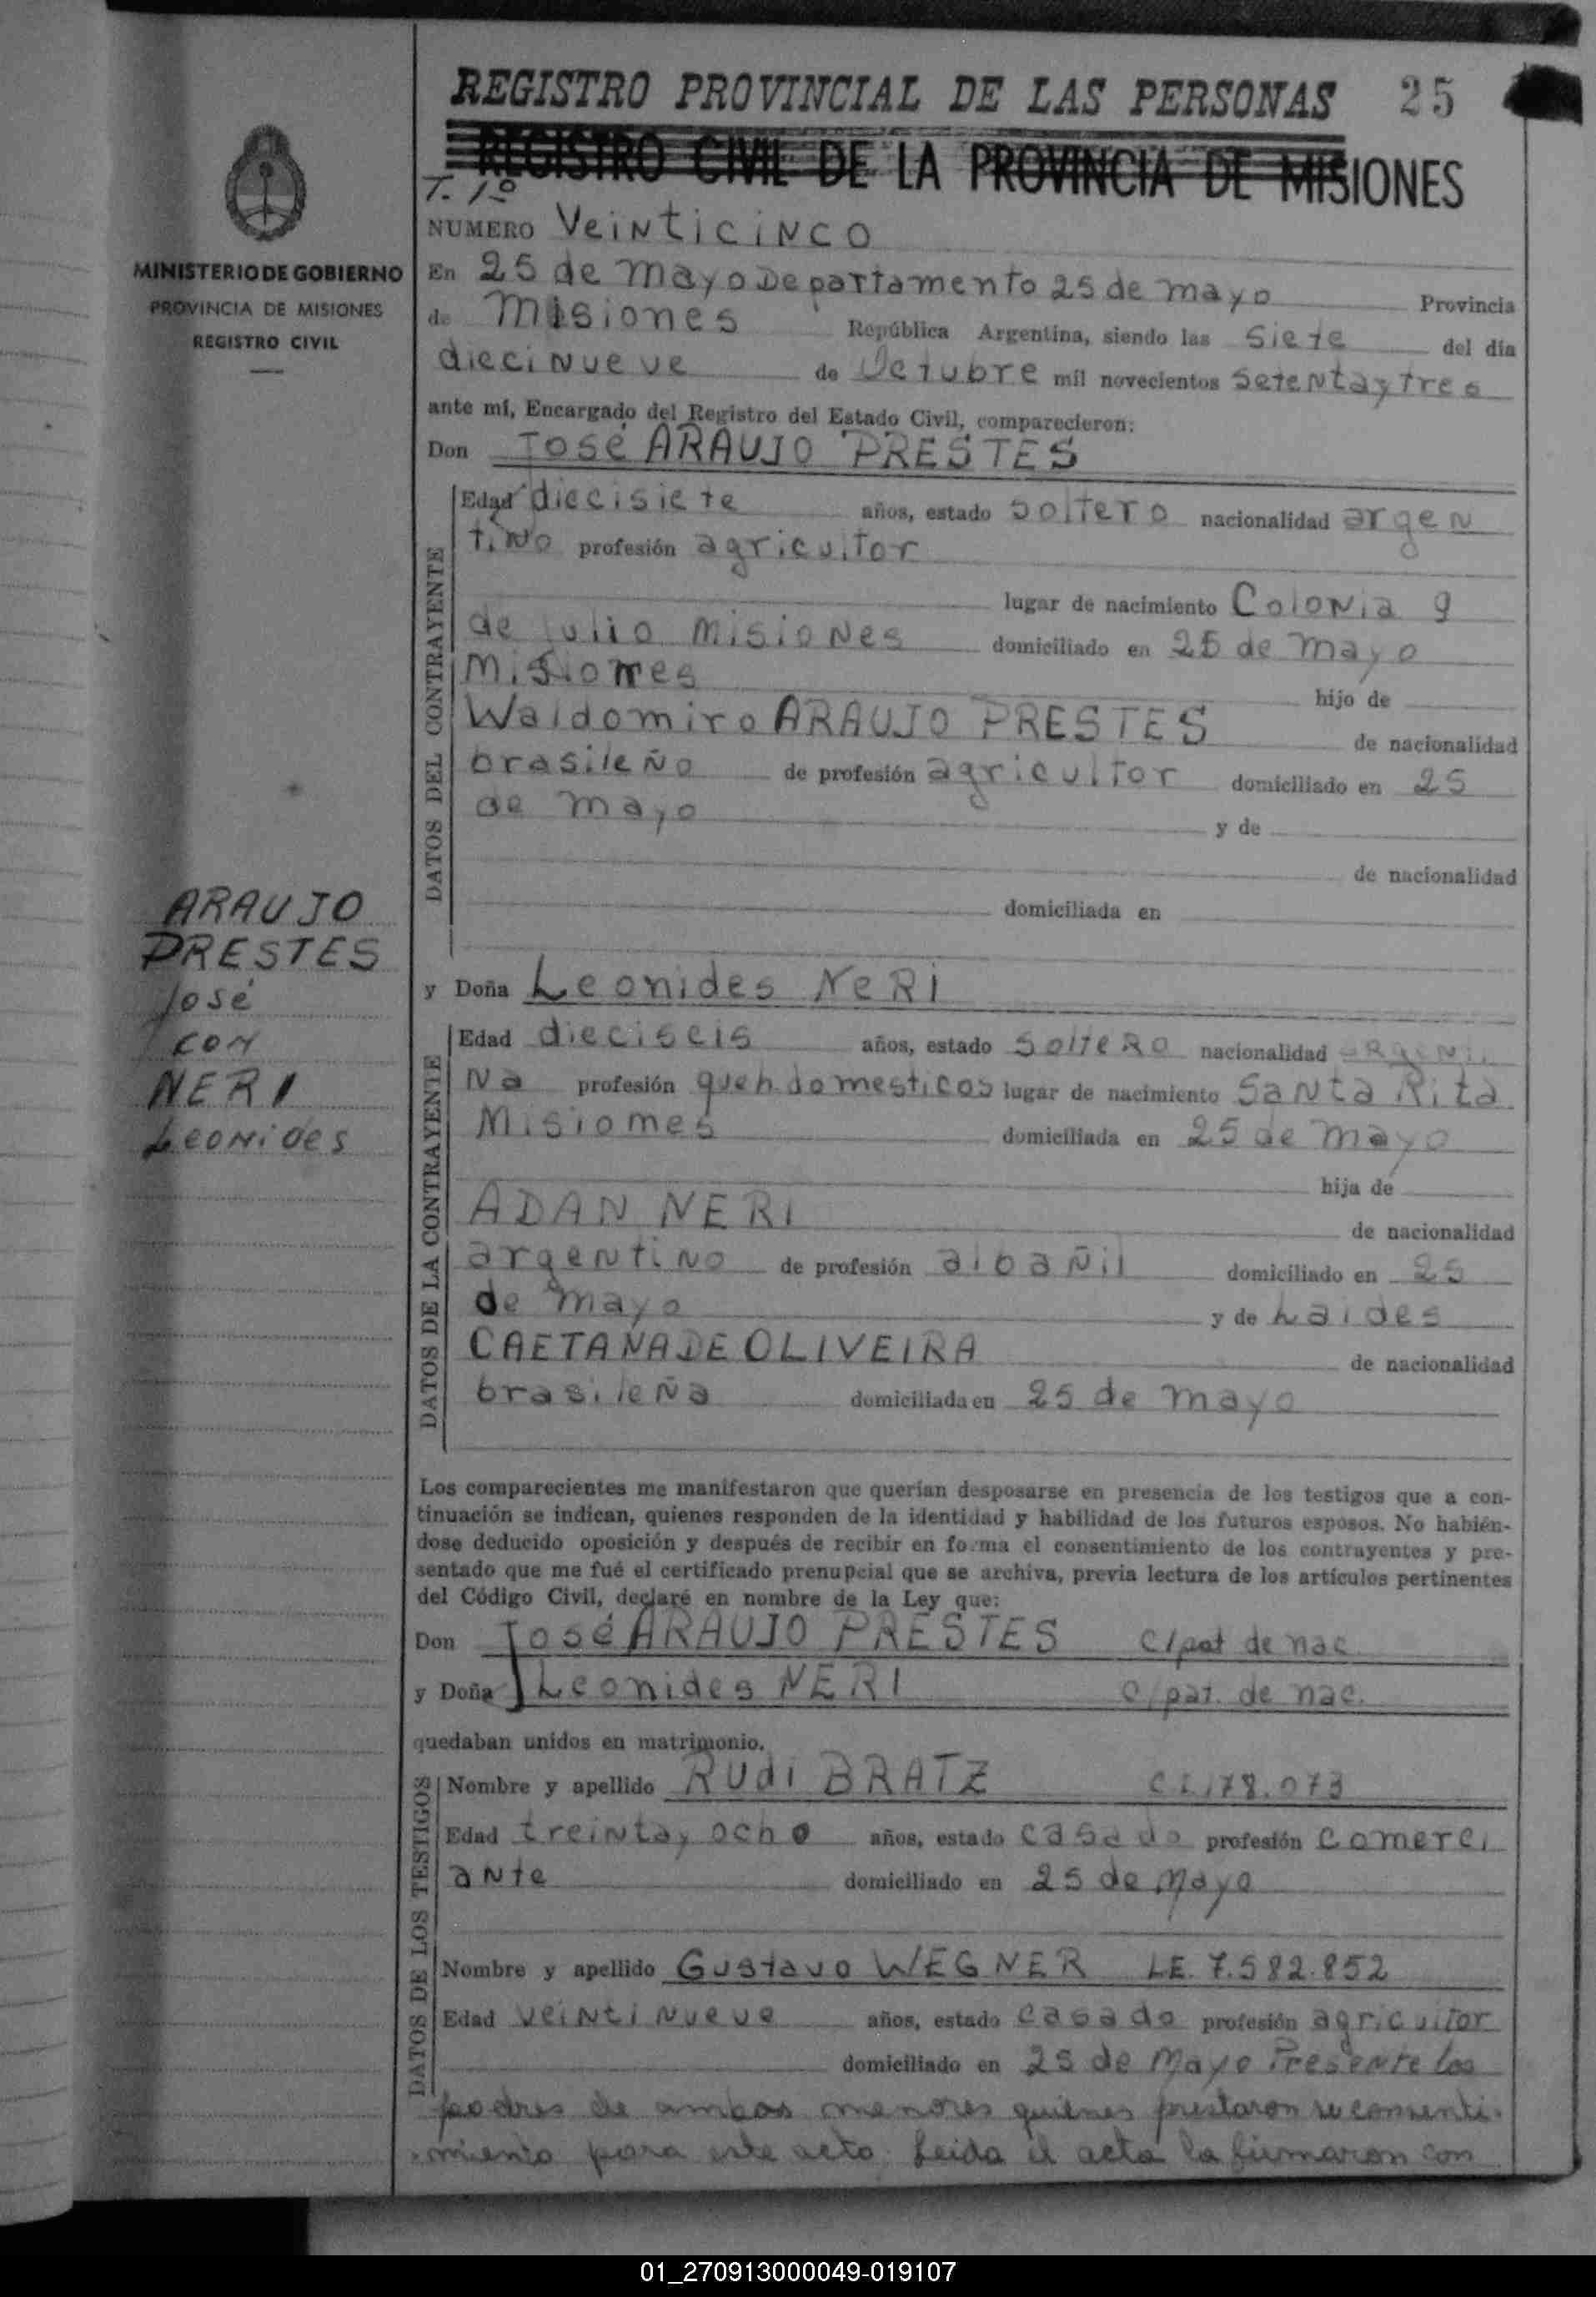 REGISTRO PROVINCIAL DE LAS PERSONAS 25
REGISTRO CIVIL DE LA PROVINCIA DE MISIONES
T. 1º
NUMERO Veinticinco
MINISTERIO DE GOBIERNO
PROVINCIA DE MISIONES
REGISTRO CIVIL
En 25 de mayo Departamento 25 de mayo Provincia
de Misiones República Argentina, siendo las siete del día
diecinueve de Octubre mil novecientos setenta y tres
ante mí, Encargado del Registro del Estado Civil, comparecieron:
Don José ARAUJO PRESTES
DATOS DEL CONTRAYENTE
Edad diecisiete años, estado soltero nacionalidad argen
tino profesión agricultor
lugar de nacimiento Colonia 9
de Julio Misiones domiciliado en 25 de mayo
Misiones
hijo de
Waldomiro ARAUJO PRESTES de nacionalidad
brasileño de profesión agricultor domiciliado en 25
de mayo y de
de nacionalidad
domiciliada en
ARAUJO
PRESTES
José
CON
NERI
Leonides
y Doña Leonides NeRi
DATOS DE LA CONTRAYENTE
Edad dieciseis años, estado solteRa nacionalidad aRgenti
Na profesión queh. domesticos lugar de nacimiento Santa Rita
Misiomes domiciliada en 25 de mayo
hija de
ADAN NERI de nacionalidad
argentino de profesión albañil domiciliado en 25
de mayo y de Laides
CAETANA DE OLIVEIRA de nacionalidad
brasileña domiciliada en 25 de mayo
Los comparecientes me manifestaron que querían desposarse en presencia de los testigos que a con-
tinuación se indican, quienes responden de la identidad y habilidad de los futuros esposos. No habién-
dose deducido oposición y después de recibir en forma el consentimiento de los contrayentes y pre-
sentado que me fué el certificado prenupcial que se archiva, previa lectura de los artículos pertinentes
del Código Civil, declaré en nombre de la Ley que:
Don José ARAUJO PRESTES C/pat de nac
y Doña Leonides NERI C/pat. de nac.
quedaban unidos en matrimonio.
DATOS DE LOS TESTIGOS
Nombre y apellido Rudi BRATZ C.I. 178.073
Edad treinta y ocho años, estado casado profesión comerci
ante domiciliado en 25 de Mayo
Nombre y apellido Gustavo WEGNER LE. 7.582.852
Edad veintinueve años, estado casado profesión agricultor
domiciliado en 25 de Mayo Presente los
padres de ambos menores quienes prestaron su consenti-
miento para este acto. Leida el acta la firmaron con
01_270913000049-019107